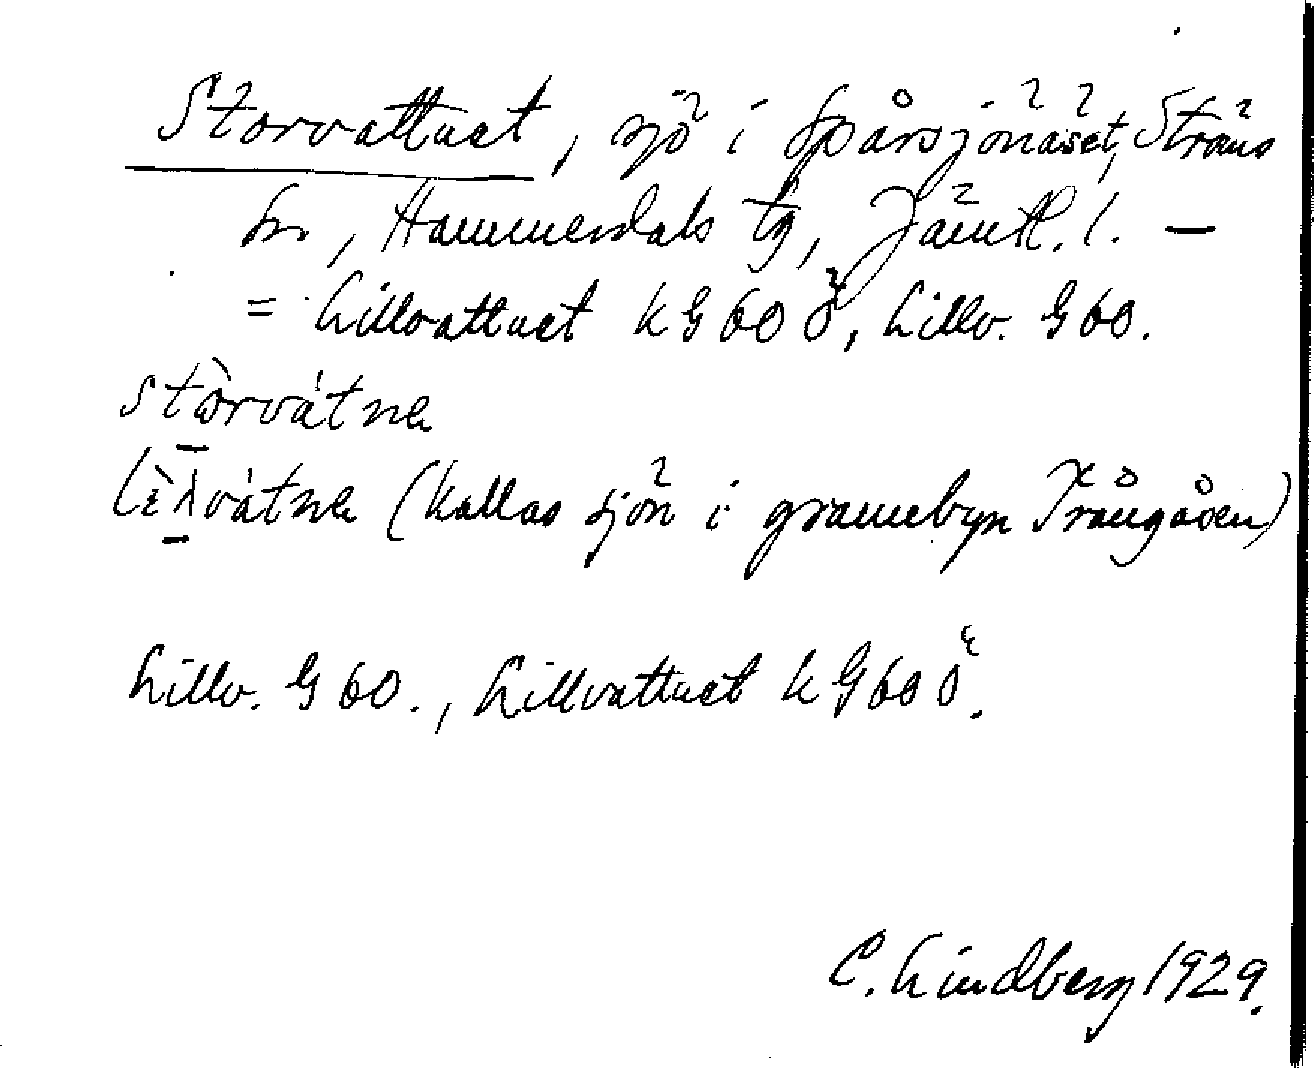 Storvattnet, sjö i Spårsjönäset, Ströms
sn, Hammerdals tg, Jämtl. l. —
= Lillvattnet k G 60 ö, Lillv. G 60.
stòrvátne
lìlvátne (kallas sjön i grannebyn Trångåsen)
Lillv. G 60., Lillvattnet k G 60 ö.
C. Lindberg 1929.